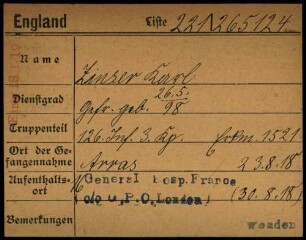 England Liste 221\265124
Name Zinser Karl
26.5.
Dienstgrad Gefr. geb. 98.
Truppenteil 126. Inf. 3. Kp. Erkm. 1521
Ort der Ge-
fangennahme Arras 23.8.18
Aufenthalts- General Hosp. France
ort c/o G.P.O. London) (30.8.18)
Bemerkungen